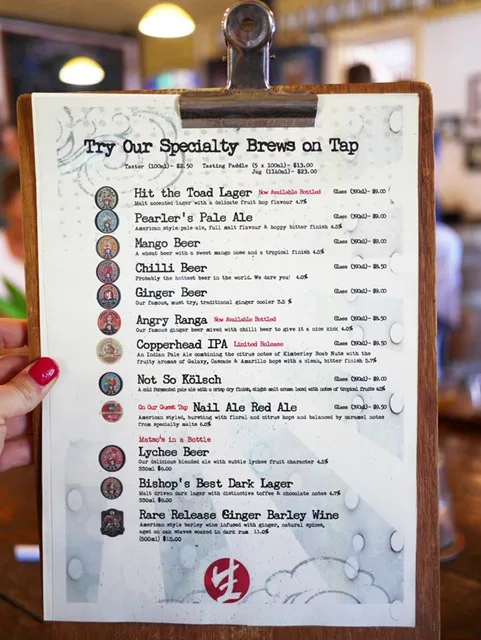 Try Our Specialty Brews on Tap
Taster (100ml)- $2.50 Tasting Paddle (5 x 100ml)- $13.00
Jug (1140ml)- $23.00
Hit the Toad Lager Now Available Bottled Glass (390ml)- $9.00
Malt accented lager with a delicate fruit hop flavour 4.7%
Pearler's Pale Ale Glass (390ml)- $9.00
American style pale ale, full malt flavour & hoppy bitter finish 4.5%
Mango Beer Glass (390ml)- $9.00
A wheat beer with a sweet mango nose and a tropical finish 4.5%
Chilli Beer Glass (390ml)- $8.50
Probably the hottest beer in the world. We dare you! 4.0%
Ginger Beer Glass (390ml)- $9.00
Our famous, must try, traditional ginger cooler 3.5 %
Angry Ranga Now Available Bottled Glass (390ml)- $8.50
Our famous ginger beer mixed with chilli beer to give it a nice kick 4.0%
Copperhead IPA Limited Release Glass (390ml)- $8.50
An Indian Pale Ale combining the citrus notes of Kimberley Boab Nuts with the
fruity aromas of Galaxy, Cascade & Amarillo hops with a clean, bitter finish 5.7%
Not So Kölsch Glass (390ml)- $9.00
A cold fermented pale ale with a crisp dry finish, slight malt aroma laced with notes of tropical fruits
On Our Guest Tap Nail Ale Red Ale Glass (390ml)- $9.50
American styled, bursting with floral and citrus hops and balanced by caramel notes
from specialty malts 6.0%
Matso's in a Bottle
Lychee Beer
Our delicious blended ale with subtle lychee fruit character 4.5%
330ml $8.00
Bishop's Best Dark Lager
Malt driven dark lager with distinctive toffee & chocolate notes 4.7%
330ml $8.00
Rare Release Ginger Barley Wine
American style barley wine infused with ginger, natural spices,
aged on oak staves soaked in dark rum 11.0%
(500ml) $15.00
生